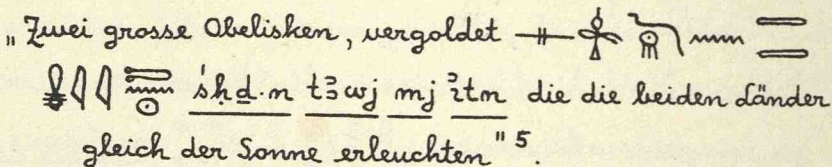 „Zwei grosse Obelisken, vergoldet 𓊃𓌉𓇶𓈖𓇿𓇿
śḥḏ·n tꜣwj mj ı͗tn die die beiden Länder
gleich der Sonne erleuchten" 5.